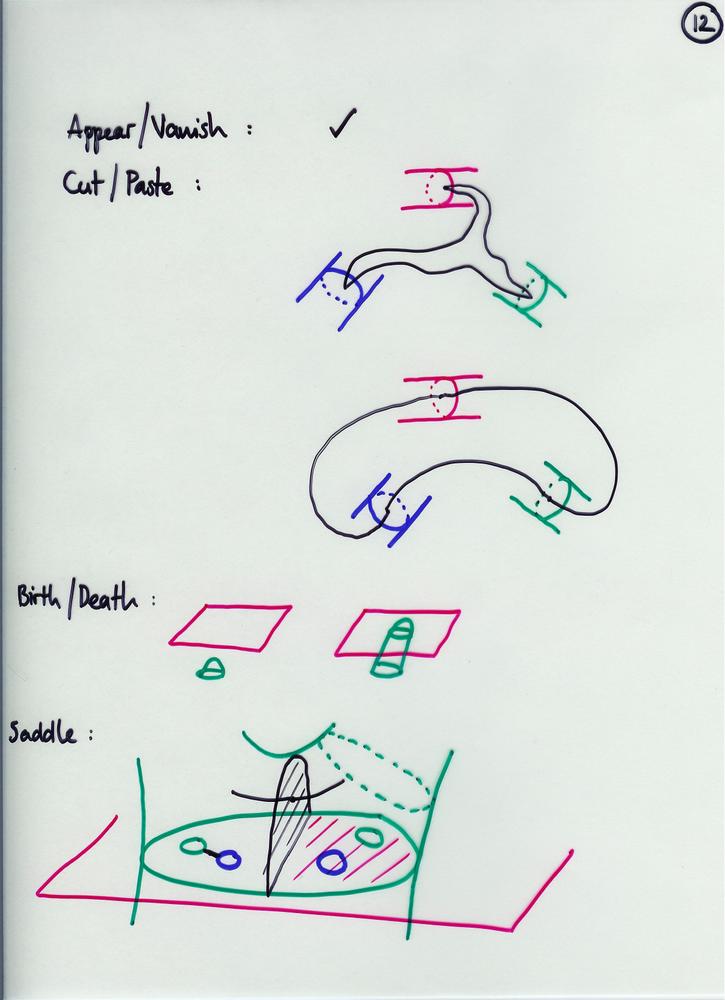 12
Appear/Vanish : ✓
Cut/Paste :
Birth/Death :
Saddle :